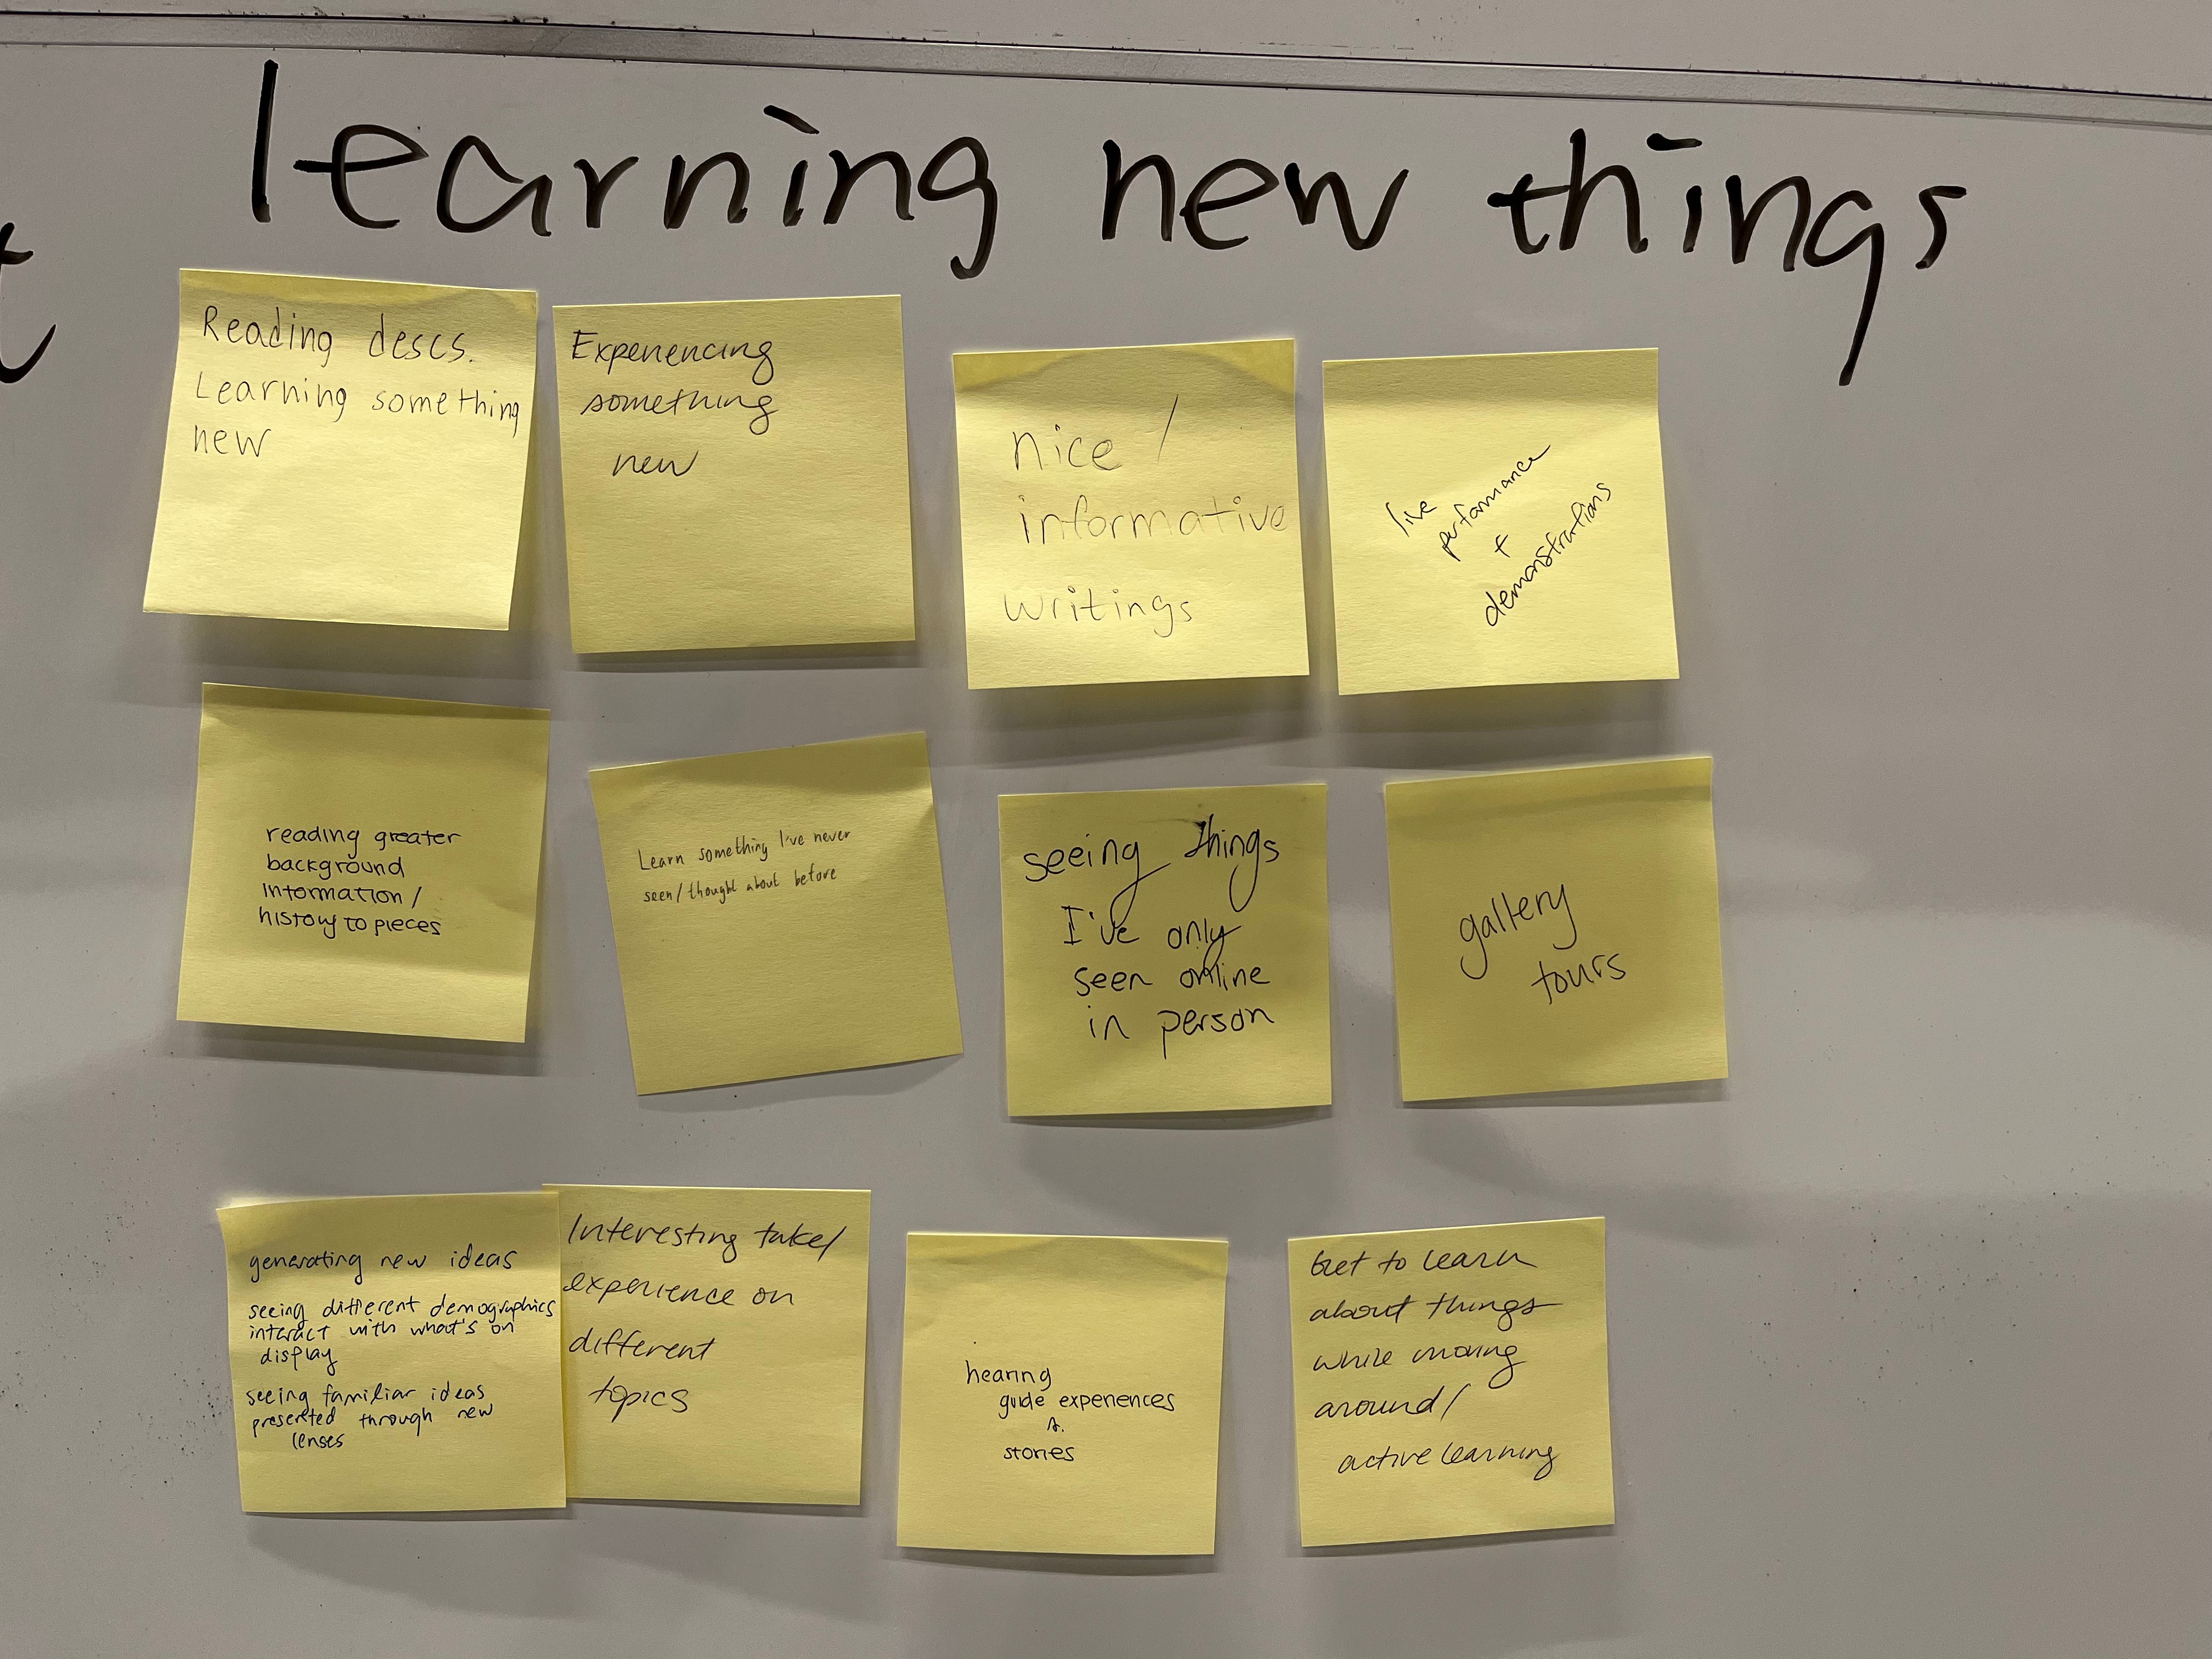 learning new things
Reading descs.
Learning something
new
Experiencing
something
new
nice /
informative
writings
live
performance
+
demonstrations
reading greater
background
information /
history to pieces
Learn something I've never
seen/thought about before
seeing things
I've only
seen online
in person
gallery
tours
generating new ideas
seeing different demographics
interact with what's on
display
seeing familiar ideas
presented through new
lenses
Interesting take/
experience on
different
topics
hearing
guide experiences
&
stories
Get to learn
about things
while moving
around/
active learning